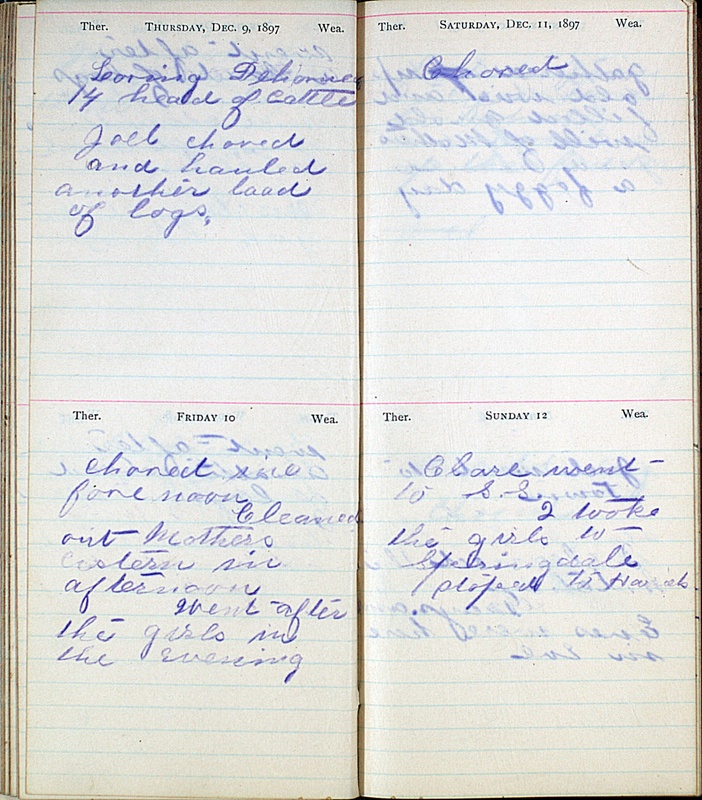 Ther. THURSDAY, DEC. 9, 1897 Wea.
Loring Dehorned
14 head of Cattle
Joel chored
and hauled
another load
of logs,
Ther. FRIDAY 10 Wea.
chored
fore noon
Cleaned
out Mothers
cistern in
afternoon
Went after
the girls in
the evening
Ther. SATURDAY, DEC. 11, 1897 Wea.
Chored
Ther. SUNDAY 12 Wea.
Clare went
to S.S.
I tooke
the girls to
Springdale
stoped